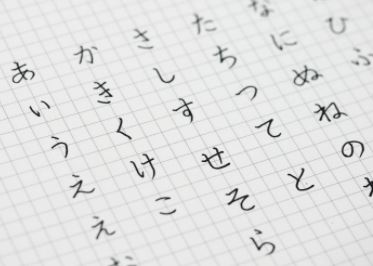 あいうええお
かきくけこ
きしすせそら
たちつてと
なにぬねの
ひふ